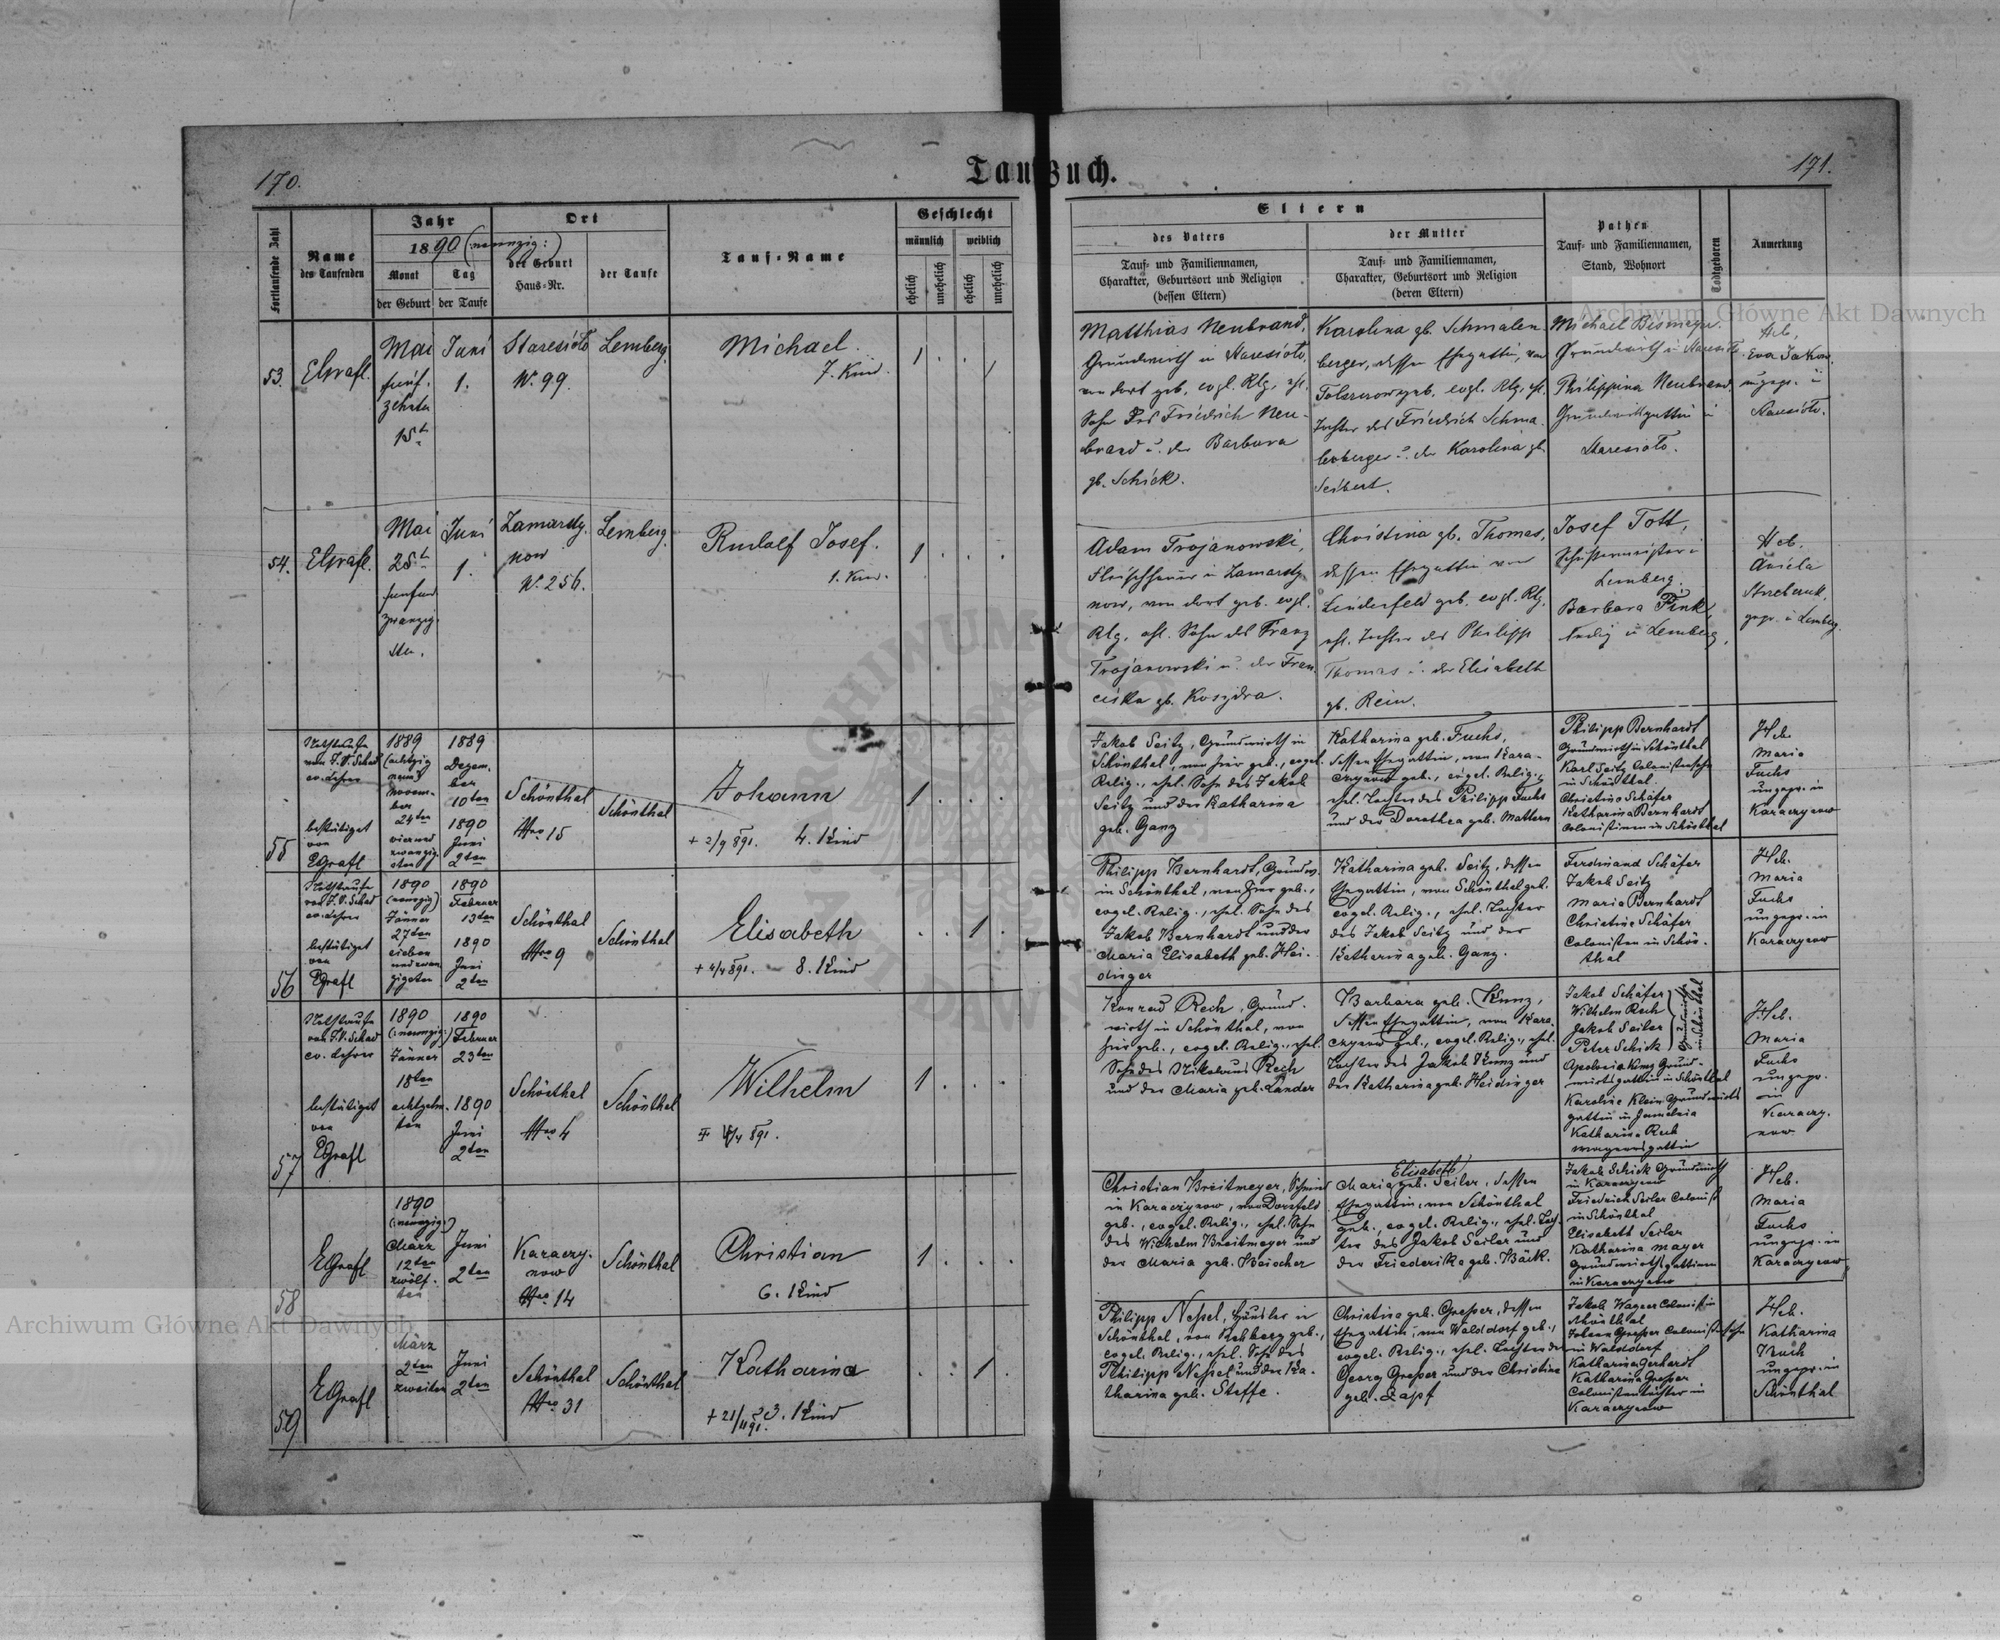 170.
Taufbuch.
171.
Fortlaufende Zahl
Name
des Taufenden
Jahr
1890 (neunzig:)
Monat
der Geburt
Tag
der Taufe
Ort
der Geburt
Haus-Nr.
der Taufe
Tauf-Name
Geschlecht
männlich
weiblich
ehelich
unehelich
ehelich
unehelich
Eltern
des Vaters
Tauf- und Familiennamen,
Charakter, Geburtsort und Religion
(dessen Eltern)
der Mutter
Tauf- und Familiennamen,
Charakter, Geburtsort und Religion
(deren Eltern)
Pathen
Tauf- und Familiennamen,
Stand, Wohnort
Todtgeboren
Anmerkung
53.
EGrafl.
Mai
fünf-
zehnten
15t
Juni
1.
Staresioło
Nº 99.
Lemberg.
Michael.
7. Kind.
1
Matthias Neubrand,
Grundwirth in Staresioło,
von dort geb. evgl. Rlg. ehl.
Sohn des Friedrich Neu-
brand u. der Barbara
gb. Schick.
Karolina gb. Schmalen-
berger, dessen Ehegattin, von
geb. evgl. Rlg. ehl.
Tochter des Friedrich Schma-
lenberger u. der Karolina gb.
Seibert.
Michael
Grundwirth in Staresioło
Philippina Neubrand,
Grundwirthgattin in
Staresioło.
Heb.
Eva
ungepr. in
Staresioło.
54.
EGrafl.
Mai
25t
fünfund
zwanzig-
sten.
Juni
1.
Zamarsty-
now
Nº 256.
Lemberg.
Rudolf Josef.
1. Kind.
1
Adam Trojanowski,
Fleischhauer in Zamarsty-
now, von dort geb. evgl.
Rlg. ehl. Sohn des Franz
Trojanowski u. der Fran-
ciska gb. Koszydra.
Christina gb. Thomas,
dessen Ehegattin von
Linderfeld geb. evgl. Rlg.
ehl. Tochter des Philipp
Thomas u. der Elisabeth
gb. Rein.
Josef Tott,
Schustermeister in
Lemberg.
Barbara Fink,
ledig in Lemberg.
Heb.
Aniela
gepr. in Lemberg.
55
Nothtaufe
von J. V. Schad
ev. Lehrer
bestätiget
von
EGrafl
1889
(achtzig
neun)
Novem-
ber
24ten
vierund
zwanzig-
sten
1889
Dezem-
ber
10ten
1890
Juni
2ten
Schönthal
Nro 15
Schönthal
Johann
+ 2/9 891. 4. Kind
1
Jakob Seitz, Grundwirth in
Schönthal, von hier geb., evgel.
Relig., ehel. Sohn des Jakob
Seitz und der Katharina
geb. Ganz
Katharina geb. Fuchs,
dessen Ehegattin, von Kara-
czynow geb., evgel. Relig.,
ehel. Tochter des Philipp Fuchs
und der Dorothea geb. Mattern
Philipp Bernhardt
Grundwirth in Schönthal
Karl Seitz Colonistensohn
in Schönthal
Christine Schäfer
Katharina Bernhardt
Colonistinen in Schönthal
Heb.
Maria
Fuchs
ungepr. in
Karaczynow
56
Nothtaufe
von J. V. Schad
ev. Lehrer
bestätiget
von
EGrafl
1890
(neunzig)
Jänner
27ten
sieben
undzwan-
zigsten
1890
Februar
13ten
1890
Juni
2ten
Schönthal
Nro 9
Schönthal
Elisabeth
+ 4/4 891. – 8. Kind
1
Philipp Bernhardt, Grundw.
in Schönthal, von hier geb.,
evgel. Relig., ehel. Sohn des
Jakob Bernhardt und der
Maria Elisabeth geb. Hei-
dinger
Katharina geb. Seitz, dessen
Ehegattin, von Schönthal geb.
evgel. Relig., ehel. Tochter
des Jakob Seitz und der
Katharina geb. Ganz.
Ferdinand Schäfer
Jakob Seitz
Maria Bernhardt
Christine Schäfer
Colonisten in Schön-
thal
Heb.
Maria
Fuchs
ungepr. in
Karaczynow
57
Nothtaufe
von J. V. Schad
ev. Lehrer
bestätiget
von
EGrafl
1890
(:neunzig:)
Jänner
18ten
achtzehn-
ten
1890
Februar
23ten
1890
Juni
2ten
Schönthal
Nro 4
Schönthal
Wilhelm
1
Konrad Rech, Grund-
wirth in Schönthal, von
hier geb., evgel. Relig., ehel.
Sohn des Nikolaus Rech
und der Maria geb. Lander
Barbara geb. Kunz,
dessen Ehegattin, von Kara-
czynow geb., evgel. Relig., ehel.
Tochter des Jakob Kunz und
der Katharina geb. Heidinger
Jakob Schäfer
Wilhelm Rech
Jakob Seiler
Peter Schick
Grundwirthe
in Schönthal
Apolonia Kunz Grund-
wirthsgattin in Schönthal
Karoline Klein Grundwirths
gattin in
Katharina Rech
Wagnersgattin
Heb.
Maria
Fuchs
ungepr.
in
Karaczy-
now
58
EGrafl
1890
(:neunzig:)
März
12ten
zwölf-
ten
Juni
2ten
Karaczy-
now
Nro 14
Schönthal
Christian
6. Kind
1
Christian Breitmeyer, Schmied
in Karaczynow, von Dornfeld
geb., evgel. Relig., ehel. Sohn
des Wilhelm Breitmeyer und
der Maria geb.
Elisabeth
Maria geb. Seiler, dessen
Ehegattin, von Schönthal
geb., evgel. Relig., ehel. Toch-
ter des Jakob Seiler und
der Friederike geb. Bäck.
Jakob Schick Grundwirth
in Karaczynow
Friedrich Seiler Colonist
in Schönthal
Elisabeth Seiler
Katharina Mayer
Grundwirthsgattinen
in Karaczynow
Heb.
Maria
Fuchs
ungepr. in
Karaczynow
59
EGrafl
März
2ten
zweiten
Juni
2ten
Schönthal
Nro 31
Schönthal
Katharina
3. Kind
+ 21/11 91.
1
Philipp Nessel, Häusler in
Schönthal, von Rehberg geb.,
evgel. Relig., ehel. Sohn des
Philipp Nessel und der Ka-
tharina geb. Steffe.
Christine geb. Gresser, dessen
Ehegattin, von Walddorf geb.,
evgel. Relig., ehel. Tochter des
Georg Gresser und der Christine
geb. Zapf
Jakob Wagner Colonist in
Schönthal
Johann Gresser Colonistensohn
in Walddorf
Katharina Gerhardt
Katharina Gresser
Colonistentöchter in
Karaczynow
Heb.
Katharina
ungepr. in
Schönthal
Archiwum Główne Akt Dawnych
Archiwum Główne Akt Dawnych